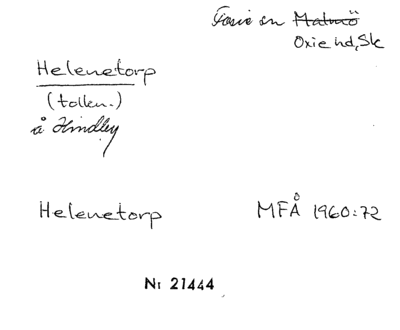 Fosie sn Malmö
Oxie hd, Sk
Helenetorp
(tolkn.)
å Hindby
Helenetorp MFÅ 1960:72
Nr 21444